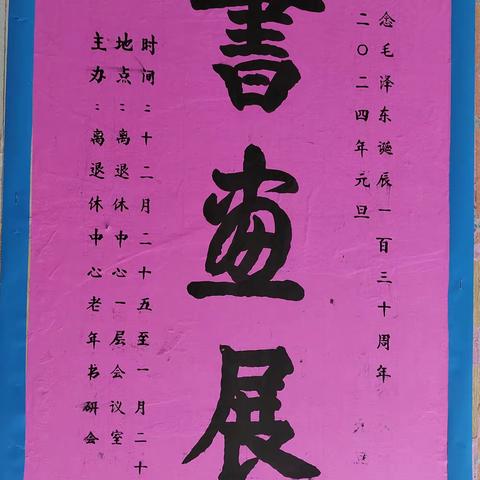 念毛泽东诞辰一百三十周年
二〇二四年元旦
書畫展
时间:十二月二十五至一月二十
地点:离退休中心一层会议室
主办:离退休中心老年书研会